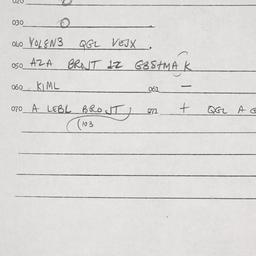 030 0
040 VOLEN3 QGL VEJX .
050 AZA BRNT 1Z G8StMA K
060 KIML 062 —
070 A LEBL BRDJT 072 + QGL A
(103